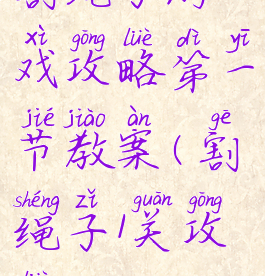 xì gōng lüè dì yī
戏攻略第一
jié jiào àn gē
节教案(割
shéng zǐ guān gōng
绳子1关攻